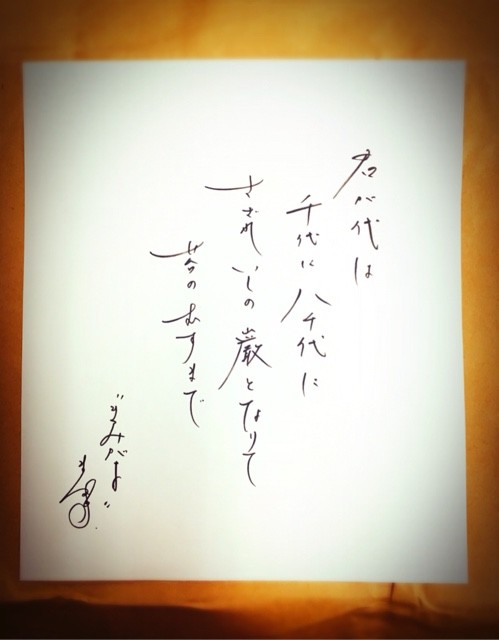 君が代は
千代に八千代に
さざれいしの巌となりて
苔のむすまで
"きみがよ"